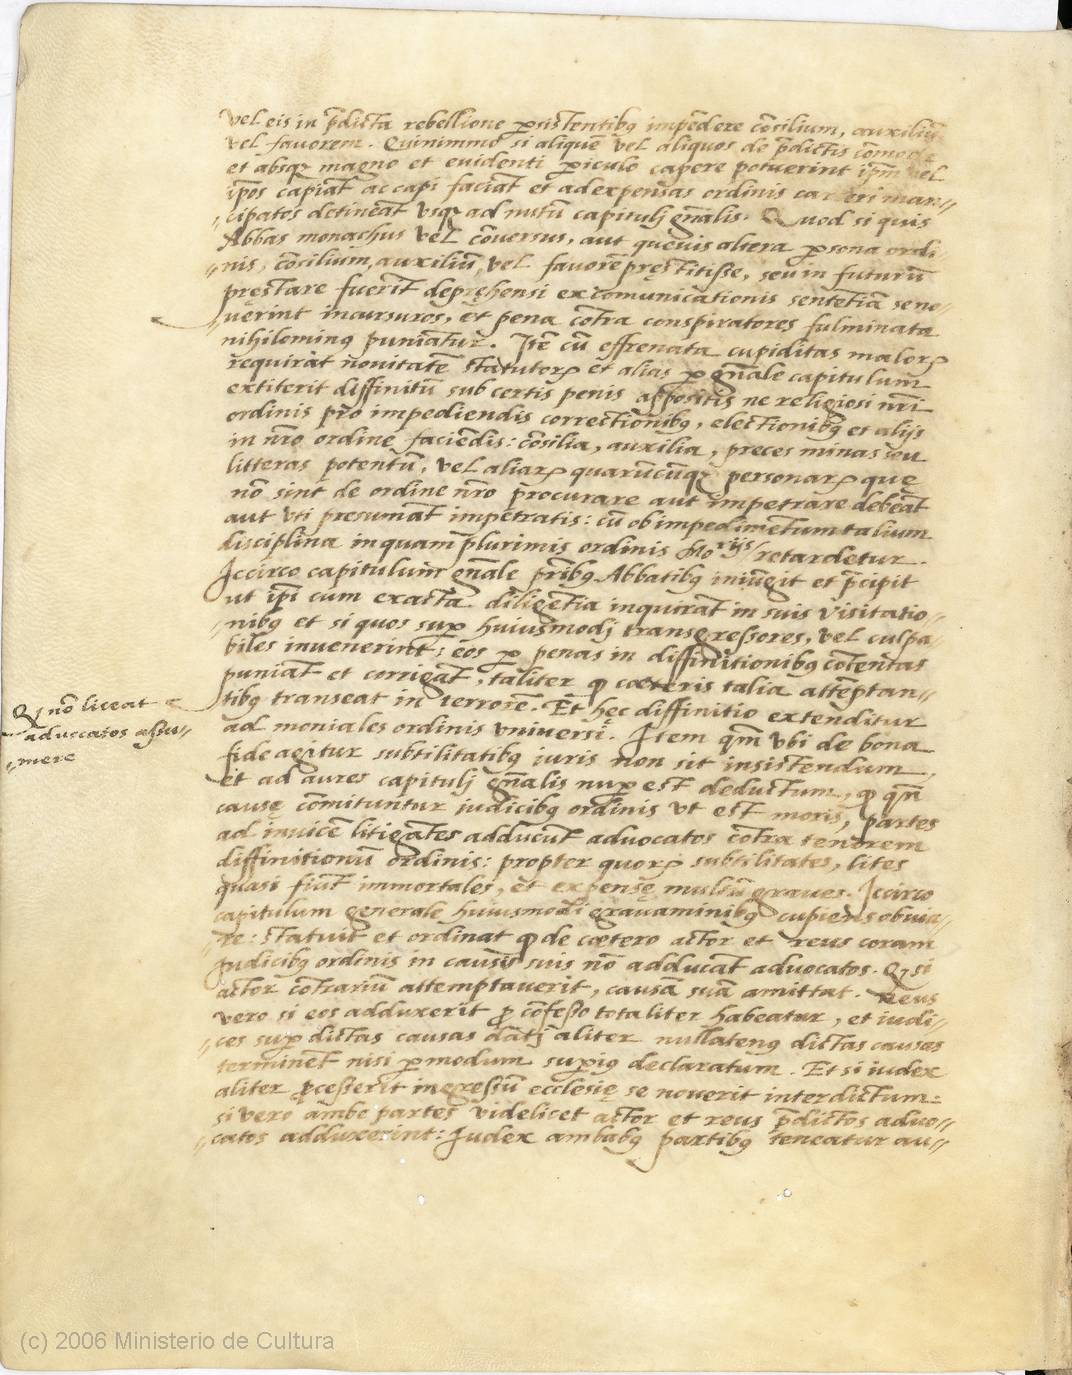 vel eis in p̃dicta rebellione ꝑsistentibꝫ impẽdere cõsilium, auxiliũ
vel favorem. Quinimmo si aliquẽ vel aliquos de p̃dictis cõmode
et absqꝫ magno et evidenti ꝑiculo capere potuerint ip̃m vel
ip̃os capiãt ac capi faciãt et ad expensas ordinis carceri man⸗
⸗cipatos detineãt vsqꝫ ad nutũ capitulj gñalis. Quod si quis
Abbas monachus vel cõversus, aut quẽvis altera ꝑsona ordi⸗
⸗nis, cõsilium, auxiliũ, vel favorẽ pręstitisse, seu in futurũ
pręstare fuerĩt deprẹhensi excomunicationis sentẽtiã se no⸗
⸗verint incursuros, et pena cõtra conspiratores fulminata
nihilominꝰ puniãtur. Itẽ cũ effrenata cupiditas maloꝝ
requirat novitatẽ statutoꝝ et alias ꝑ gñale capitulum
extiterit diffinitũ sub certis penis appositis ne religiosi nr̃i
ordinis pro impediendis correctionibꝫ, electionibꝫ et alijs
in nr̃o ordine faciẽdis: cõsilia, auxilia, preces minas seu
litteras potentũ, vel aliaꝝ quarũcũqꝫ personaꝝ quę
nõ sint de ordine nr̃o procurare aut impetrare debeãt
aut vti presumãt impetratis: cũ ob impedimẽtum talium
disciplina in quam plurimis ordinis Mo.rijs retardetur.
Iccirco capitulum gñale pr̃ibꝫ Abbatibꝫ iniũgit et p̃cipit
ut ip̃i cum exacta diligẽtia inquirãt in suis visitatio⸗
⸗nibꝫ et si quos suꝑ huiusmodj transgressores, vel culpa⸗
biles invenerint: eos ꝑ penas in diffinitionibꝫ cõtentas
puniãt et corrigãt, taliter ꝙ cœteris talia attẽptan⸗
⸗tibꝫ transeat in terrorẽ. Et hęc diffinitio extenditur
ad moniales ordinis vniversi. Item qm̃ vbi de bona
fide agitur subtilitatibꝫ iuris non sit insistendum,
et ad aures capitulj gñalis nuꝑ est deductum, ꝙ qñ
causę cõmituntur iudicibꝫ ordinis vt est moris, partes
ad invicẽ litigãtes adducũt advocatos cõtra tenorem
diffinitionũ ordinis: propter quoꝝ subtilitates, lites
quasi fiũt immortales, et expensę multũ graves. Iccirco
capitulum generale huiusmodi gravaminibꝫ cupiens obvia⸗
⸗re: statuit et ordinat ꝙ de cœtero actor et reus coram
Iudicibꝫ ordinis in causis suis nõ adducãt advocatos. Qꝫ si
actor cõtrariũ attemptaverit, causã suã amittat. Reus
vero si eos adduxerit ꝓ cõfesso totaliter habeatur, et iudi⸗
⸗ces suꝑ dictas causas datj aliter nullatenꝰ dictas causas
terminẽt nisi ꝑ modum suꝑiꝰ declaratum. Et si iudex
aliter ꝓcesserit ingressũ ecclesię se noverit interdictum:
si vero ambe partes videlicet actor et reus p̃dictos advo⸗
⸗catos adduxerint: Iudex ambabꝫ partibꝫ teneatur au⸗
Qꝫ nõ liceat
advocatos assu⸗
⸗mere
(c) 2006 Ministerio de Cultura